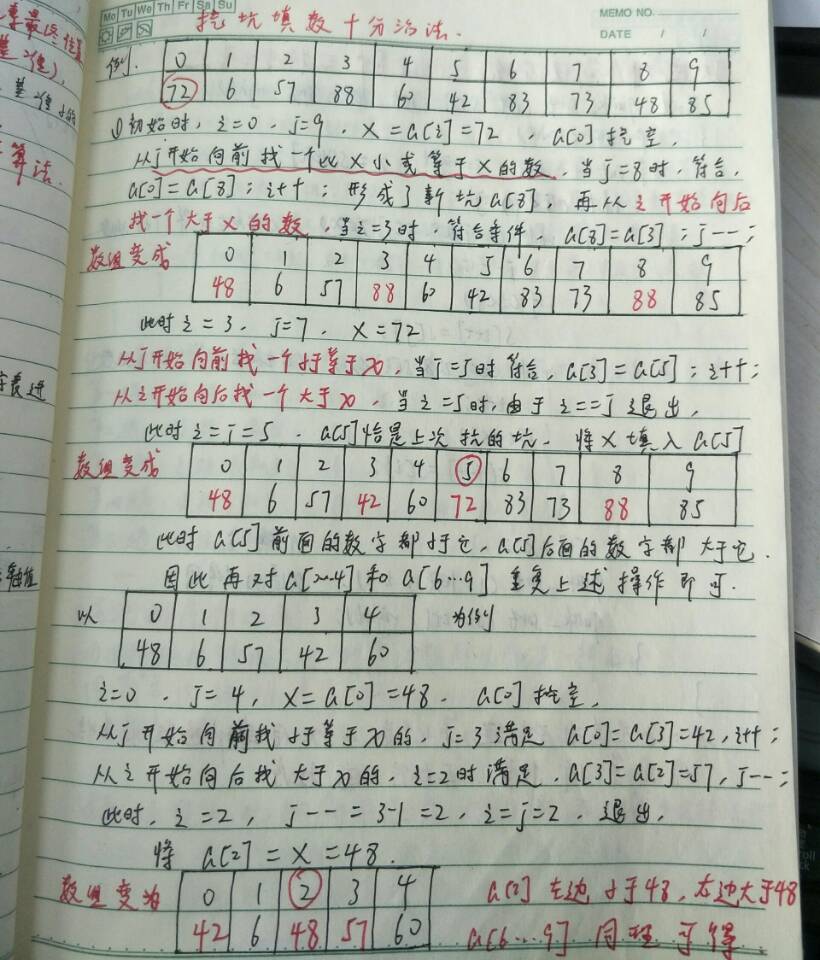 Mo Tu We Th Fr Sa Su
MEMO NO.
DATE / /
挖坑填数+分治法.
例. 0 1 2 3 4 5 6 7 8 9
72 6 57 88 60 42 83 73 48 85
①初始时, i=0. j=9. X=a[i]=72. a[0]挖空,
从j开始向前找一个比X小或等于X的数, 当j=8时, 符合,
a[0]=a[8]; i++; 形成了新坑a[8], 再从i开始向后
找一个大于X的数, 当i=3时, 符合条件, a[8]=a[3]; j--;
数组变成 0 1 2 3 4 5 6 7 8 9
48 6 57 88 60 42 83 73 88 85
此时 i=3. j=7. X=72
从j开始向前找一个小于等于x, 当j=5时符合, a[3]=a[5]; i++;
从i开始向后找一个大于x, 当i=5时, 由于i==j退出,
此时i=j=5. a[5]恰是上次挖的坑. 将X填入a[5]
数组变成 0 1 2 3 4 5 6 7 8 9
48 6 57 42 60 72 83 73 88 85
此时a[5]前面的数字都小于它, a[5]后面的数字都大于它.
因此再对a[0~4]和a[6…9]重复上述操作即可.
以 0 1 2 3 4 为例
48 6 57 42 60
i=0. j=4, X=a[0]=48. a[0]挖空,
从j开始向前找小于等于x的, j=3满足 a[0]=a[3]=42, i++;
从i开始向后找大于x的, i=2时满足, a[3]=a[2]=57, j--;
此时, i=2, j--=3-1=2, i=j=2, 退出,
将a[2]=X=48.
数组变为 0 1 2 3 4 a[2]左边小于48, 右边大于48
42 6 48 57 60 a[6…9]同理可得